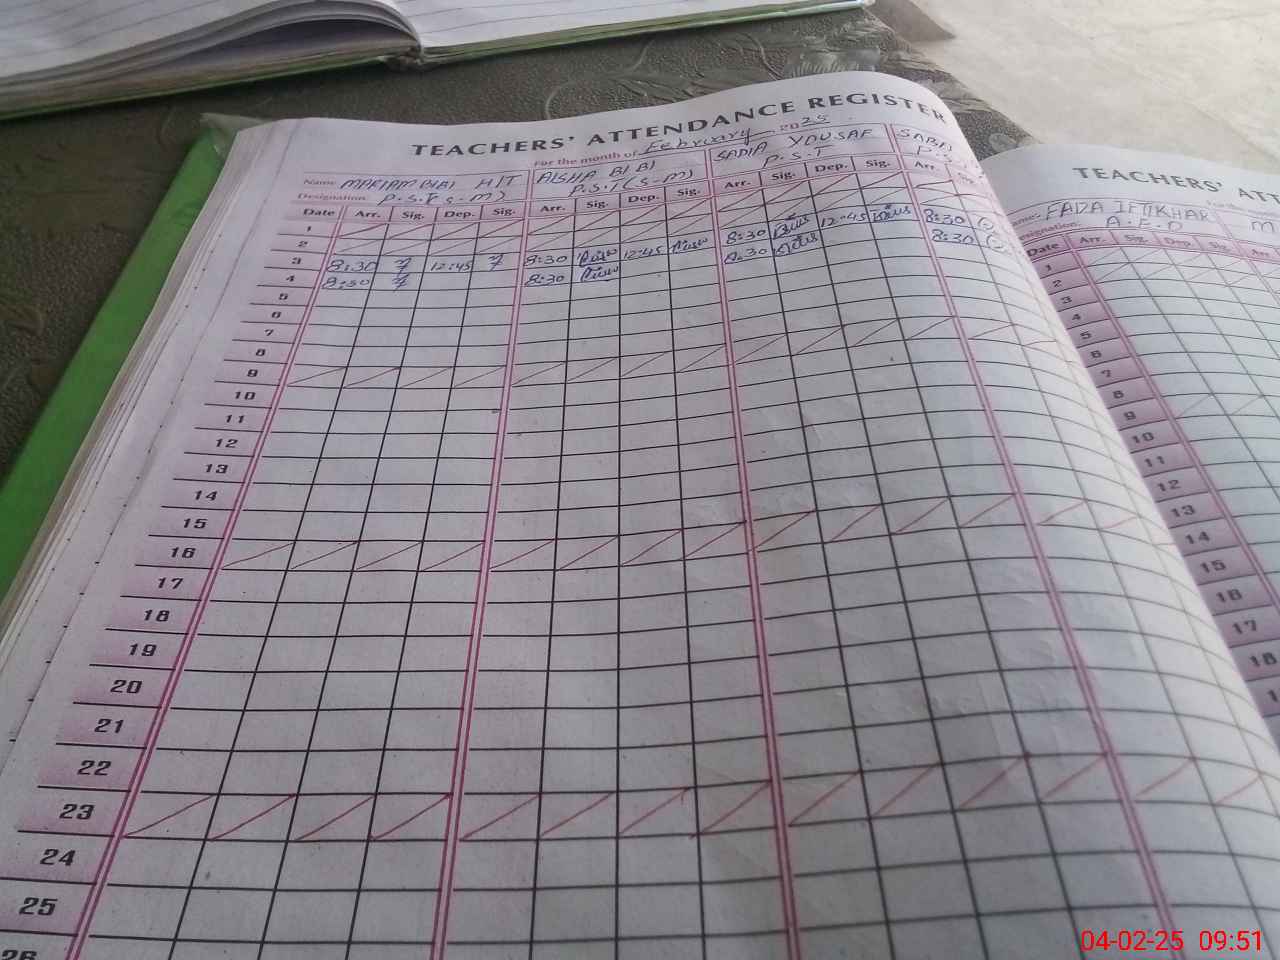 TEACHERS' ATTENDANCE REGISTER
For the month of February 2025
Name MARIAM BIBI HIT AISHA BIBI SADIA YOUSAF
Designation P.S.T (S-M) P.S.T (S-M) P.S.T
Date Arr. Sig. Dep. Sig. Arr. Sig. Dep. Sig. Arr. Sig. Dep. Sig. Arr.
1
2
3 8:30 12:45 8:30 12:45 8:30 12:45 8:30
4 8:30 8:30 8:30 8:30
5
6
7
8
9
10
11
12
13
14
15
16
17
18
19
20
21
22
23
24
25
26
TEACHERS' ATT
FADA IFTIKHAR M
A.E.O
Date Arr. Sig. Dep. Sig. Arr
1
2
3
4
5
6
7
8
9
10
11
12
13
14
15
16
17
18
04-02-25 09:51